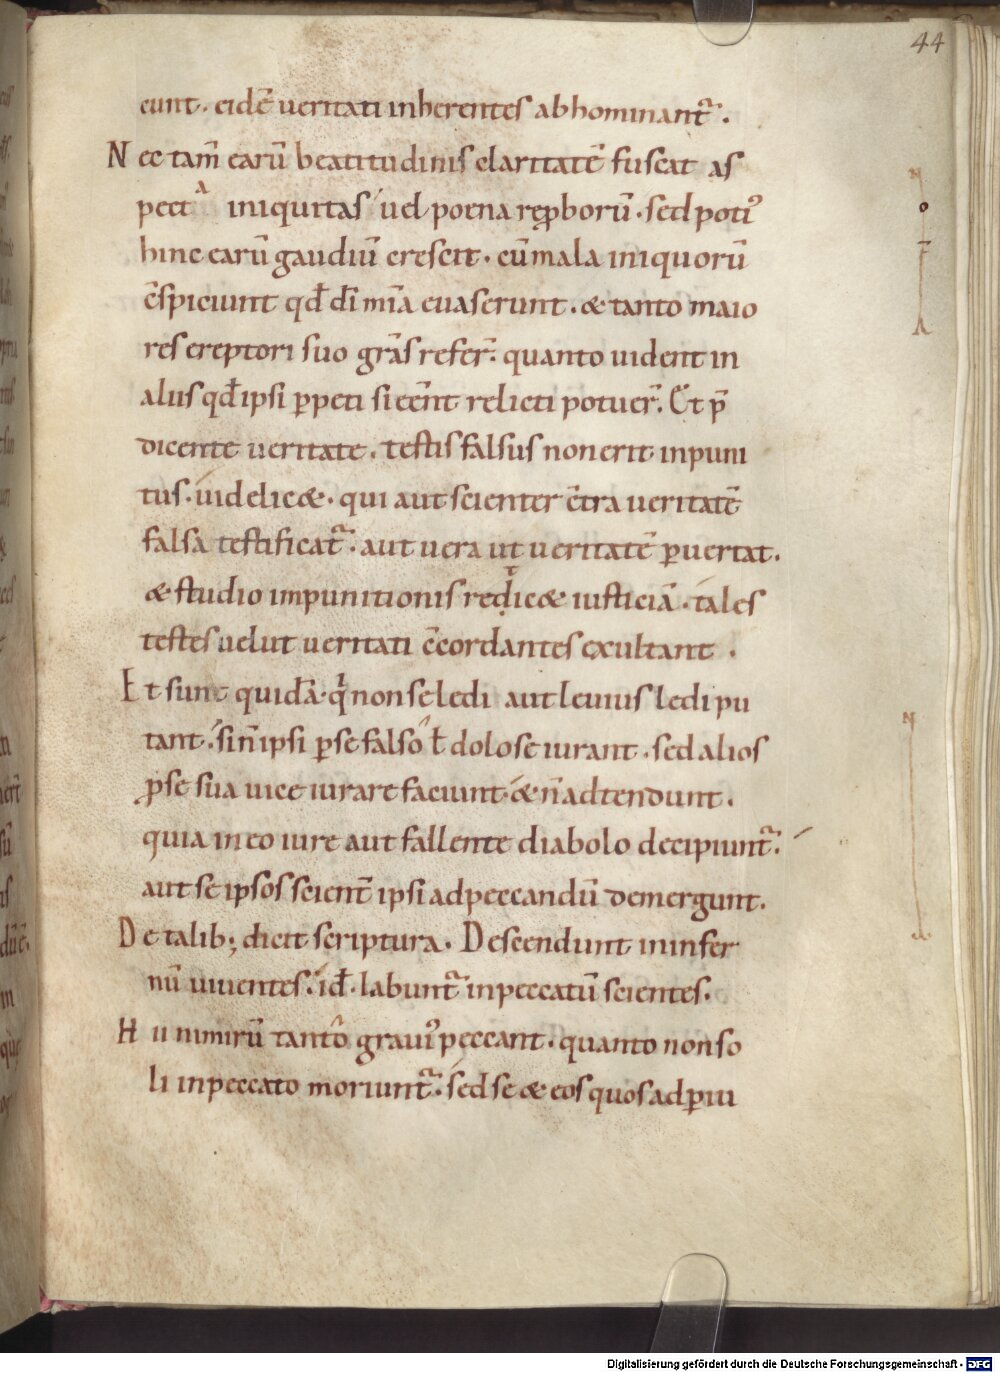 44
eunt. eidē ueritati inherentes abhominant᷑.
Nec tam̄ earū beatitudinis claritatē fuscat as
pectᵃ iniquitas uel poena reꝓborū. sed poti᾿
hinc earū gaudiū crescit. cū mala iniquorū
c̄spiciunt qđ dī mīa euaserunt. & tanto maio
res ereptori suo grās refer̄. quanto uident in
aliis qđ ipsi ꝑpeti si eēnt relicti potuer̄. Et p̄
dicente ueritate. testis falsus non erit inpuni
tus. uidelic&. qui aut scienter c̄tra ueritatē
falsa testificat᷑. aut uera ut ueritatē ꝑuertat.
& studio impunitionis redic& iusticiā. tales
testes uelut ueritati c̄cordantes exultant.
Et sunt quidā. qͥ non se ledi aut leuius ledi pu
tant. si n̄ ipsi ꝑ se falso ł dolose iurant. sed alios
ꝓ se sua uice iurare faciunt. & n̄ adtendunt.
quia in eo iure aut fallente diabolo decipiunt᷑.
aut se ipsos scient̄ ipsi ad peccandū demergunt.
De talib; dicit scriptura. Descendunt in infer
nū uiuentes. id̄. labunt᷑ in peccatū scientes.
Hii nimirū tanto graui᾿ peccant. quanto non so
li in peccato moriunt᷑. sed se & eos quos ad ꝑiu
N
o
T
A
N
Digitalisierung gefördert durch die Deutsche Forschungsgemeinschaft - DFG